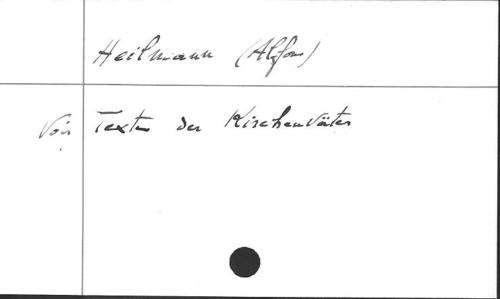 Heilmann (Alfons)
Voir Texte der Kirchenväter